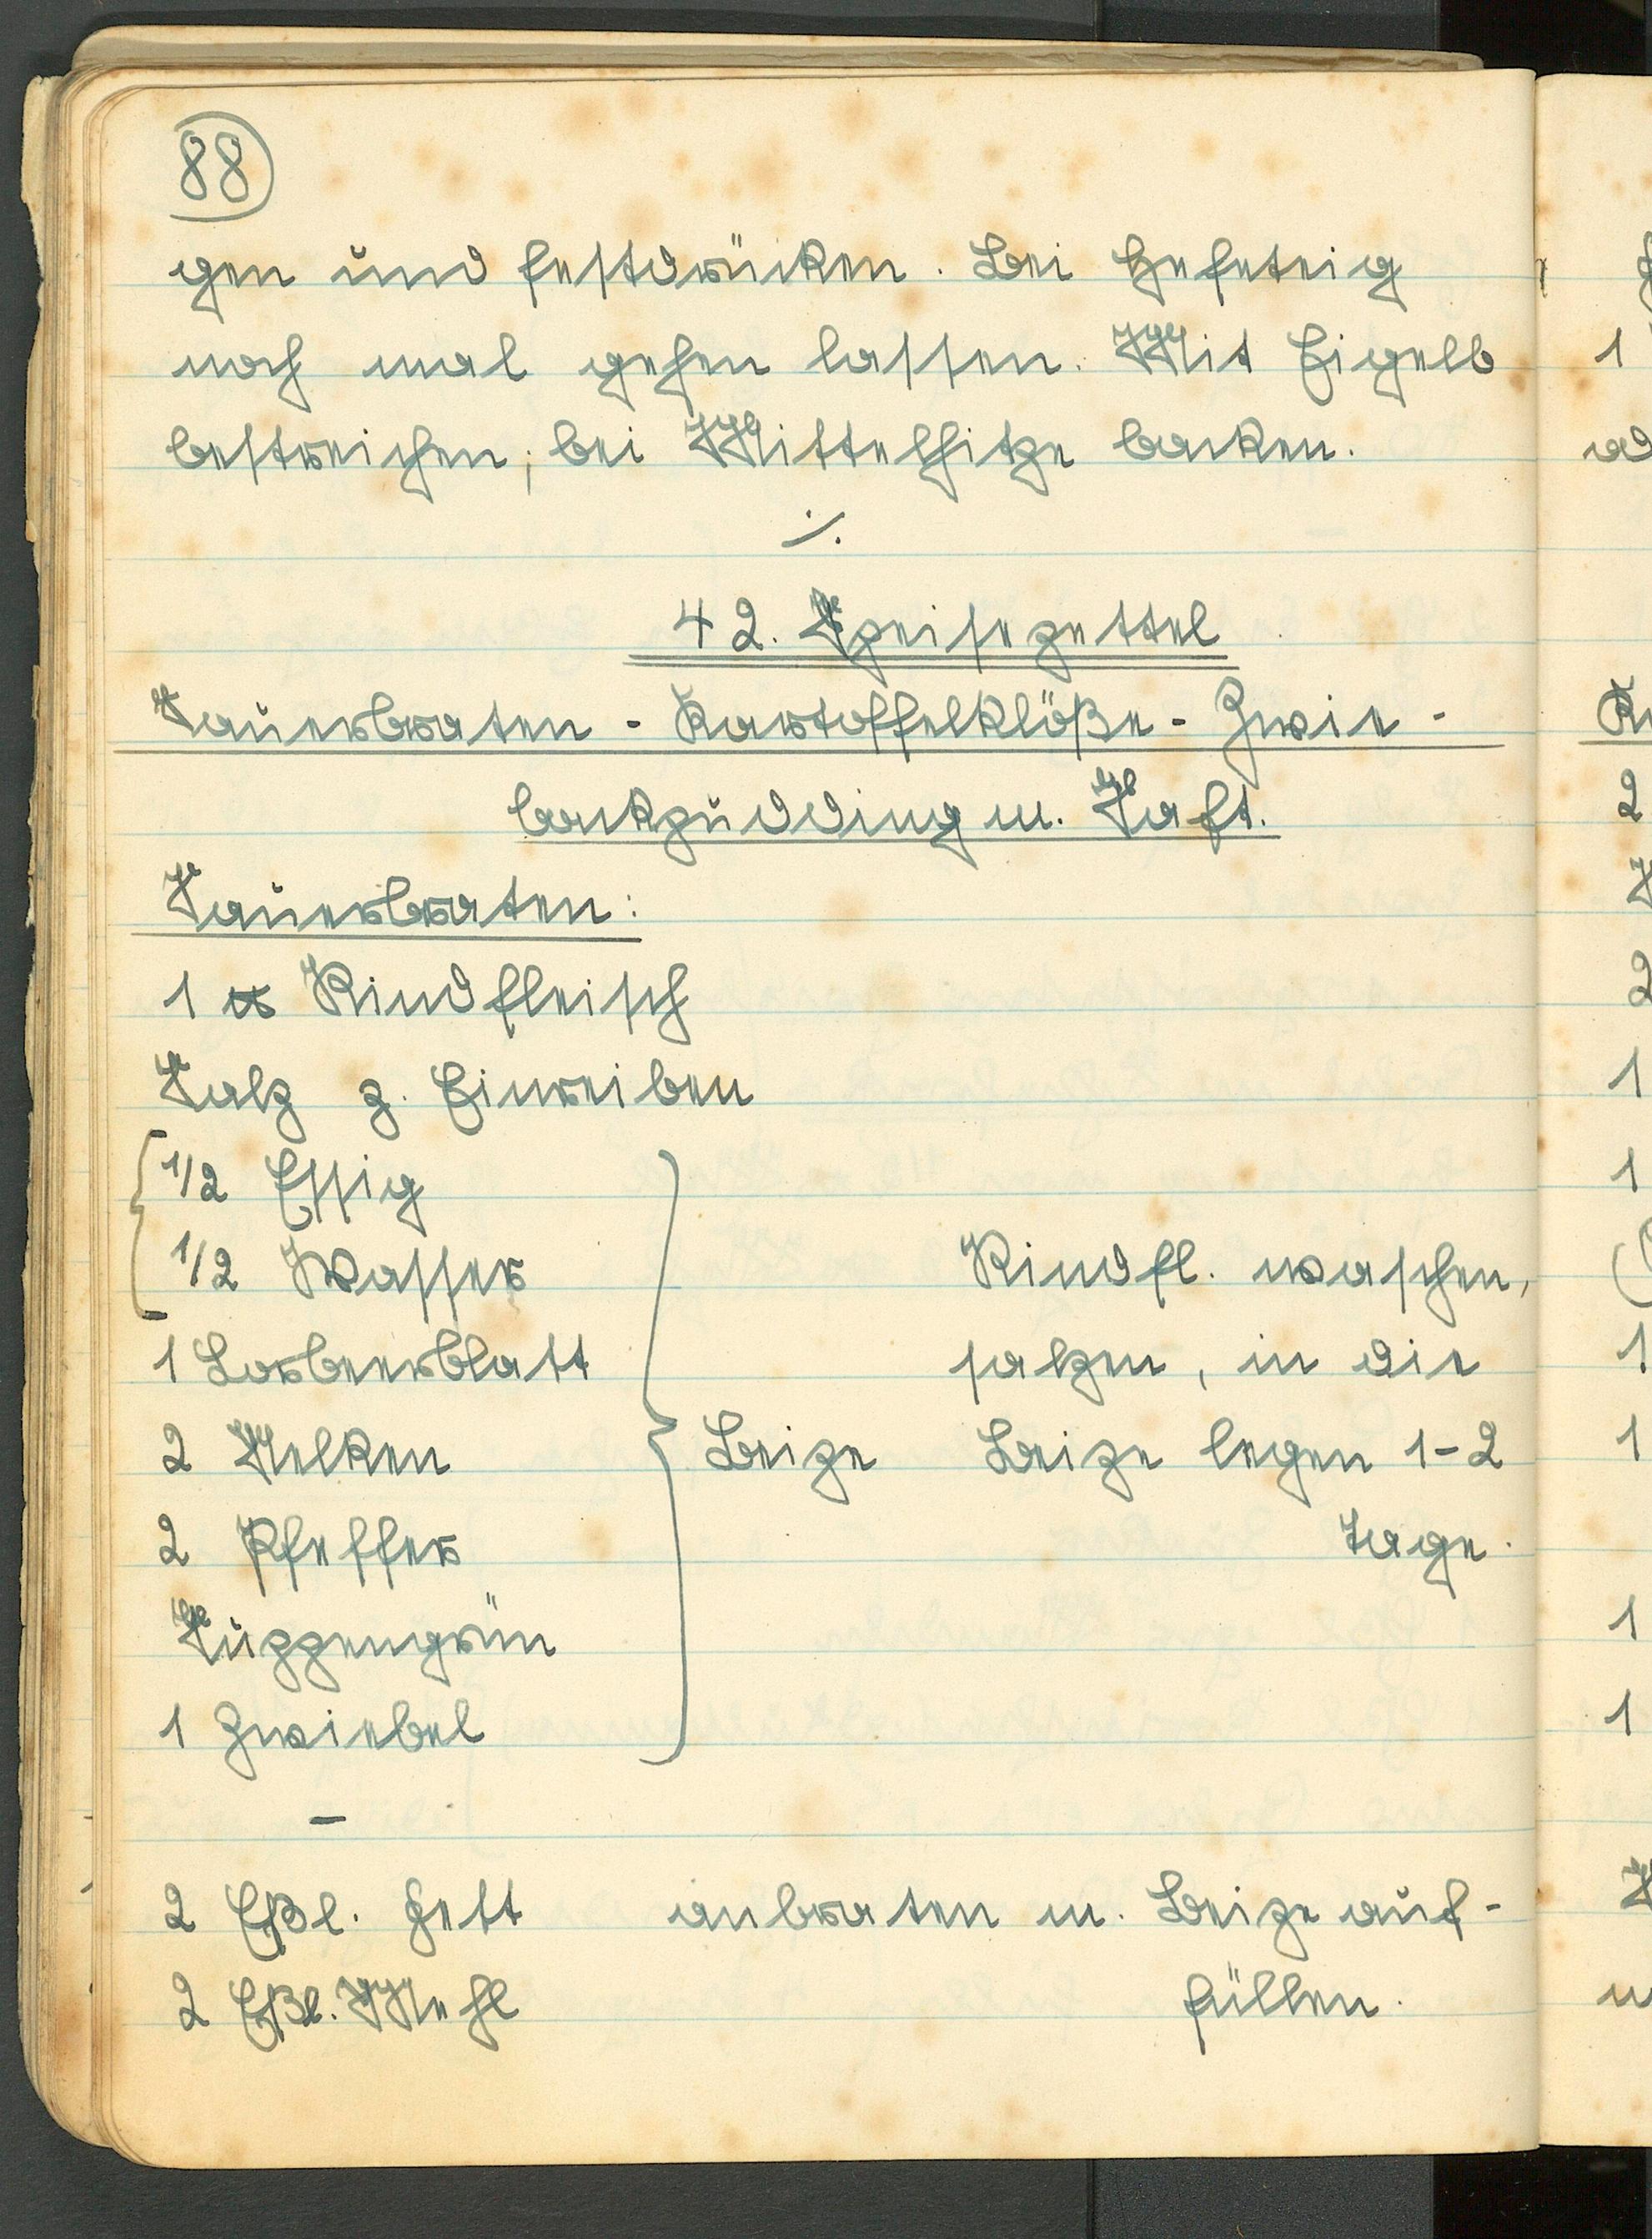 88
gen und festdrücken. Bei Hefeteig
noch mal gehen lassen. Mit Eigelb
bestreichen, bei Mittelhitze backen.
./.
42. Speisezettel
Sauerbraten - Kartoffelklöße - Zwie-
backpudding m. Saft.
Sauerbraten:
1 ℔ Rindfleisch
Salz z. Einreiben
1/2 Essig
1/2 Wasser
1 Lorbeerblatt
2 Nelken
2 Pfeffer
Suppengrün
1 Zwiebel
Beize
Rindfl. waschen,
salzen, in die
Beize legen 1-2
Tage.
-
2 Eßl. Fett anbraten m. Beize auf-
2 Eßl. Mehl füllen.